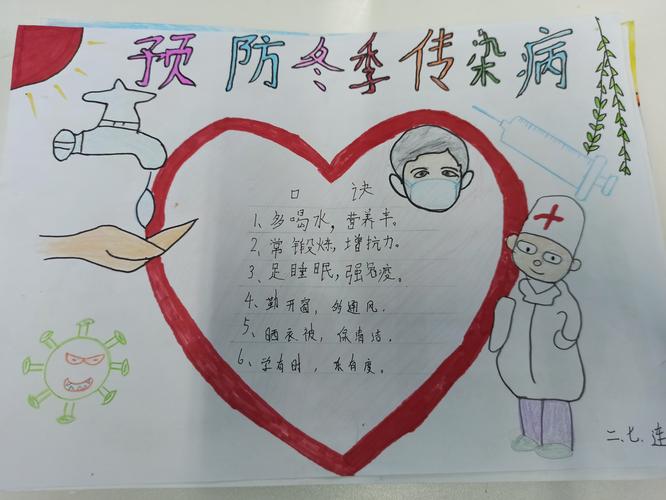 预防冬季传染病
口诀
1、多喝水，营养丰。
2、常锻炼，增抗力。
3、足睡眠，强免疫。
4、勤开窗，多通风.
5、晒衣被，保清洁.
6、学有时，东有度。
二.七.连